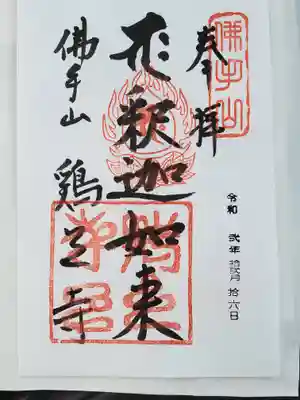 奉拝
釈迦如来
佛手山 鶏足寺
佛手山
令和 弐年 拾弐月 拾六日